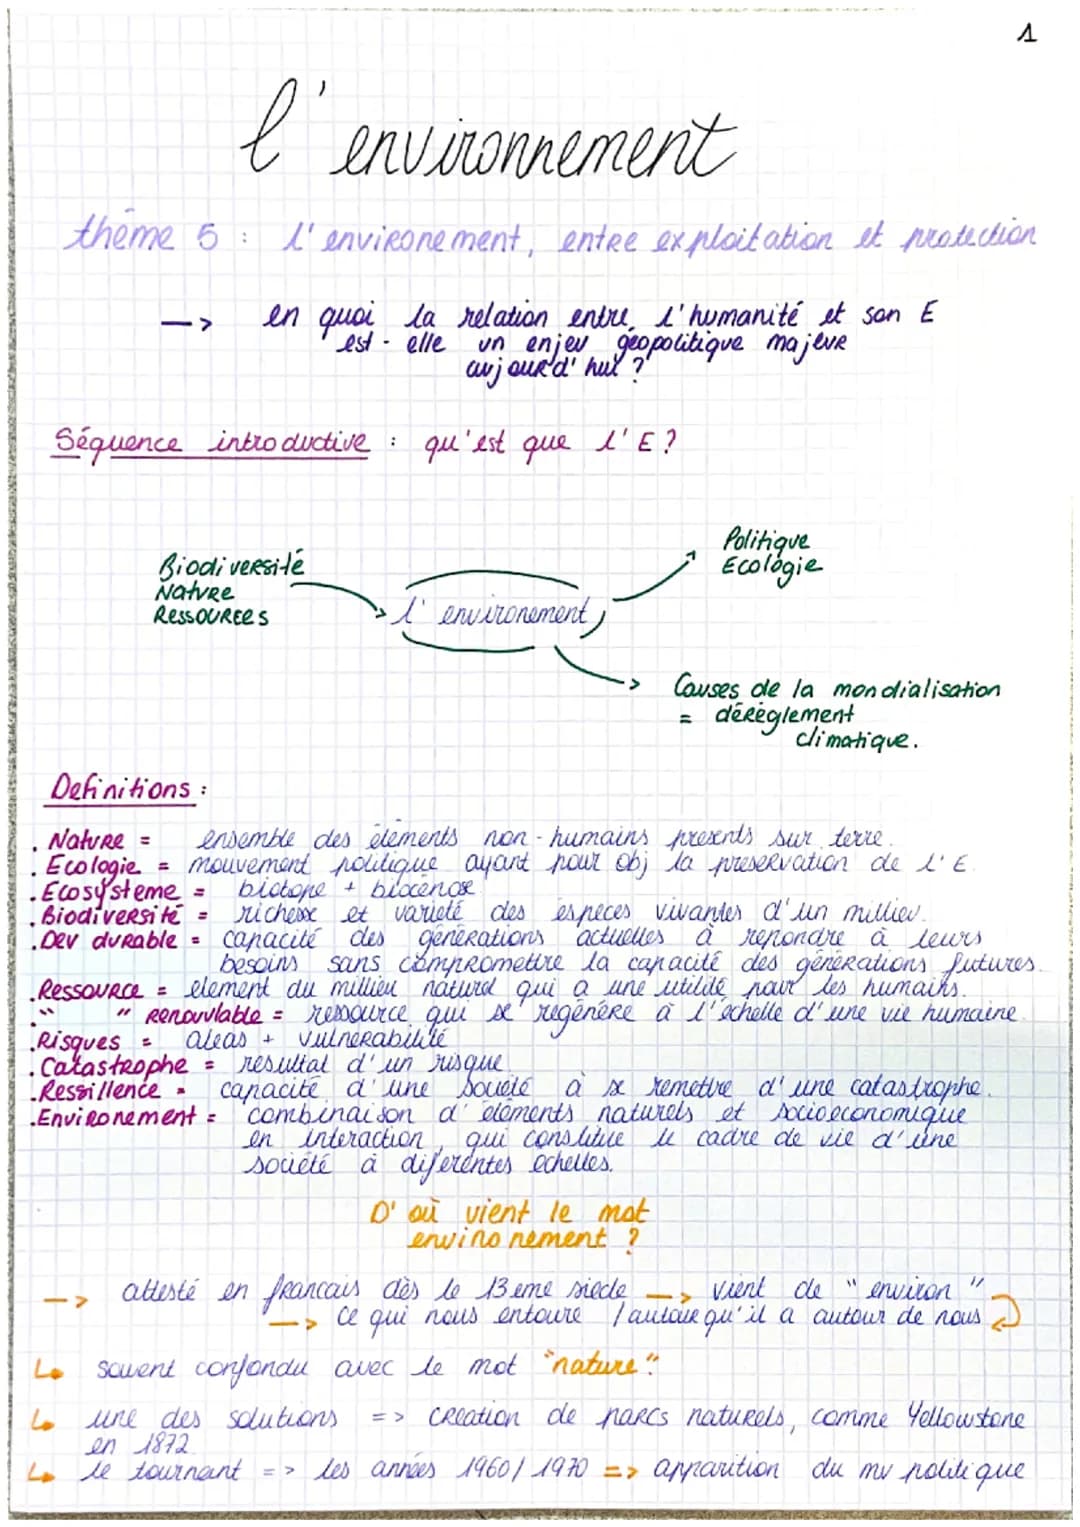 1
l'environnement
thème 5 : l'environement, entre exploitation et protection
--> en quoi la relation entre l'humanité et son E
est-elle un enjeu géopolitique majeur
aujourd'hui ?
Séquence introductive : qu'est que l'E ?
Biodiversité
Nature
Ressources
l'environement
Politique
Ecologie
Causes de la mondialisation
= dérèglement
climatique.
Definitions :
. Nature = ensemble des éléments non-humains présents sur terre.
. Ecologie = mouvement politique ayant pour obj la préservation de l'E.
. Ecosystème = biotope + biocénose
. Biodiversité = richesse et variété des espèces vivantes d'un millieu.
. Dev durable = capacité des générations actuelles à répondre à leurs
besoins sans compromettre la capacité des générations futures.
. Ressource = element du millieu naturel qui a une utilité pour les humains.
. " " Renouvlable = ressource qui se regénère à l'échelle d'une vie humaine.
. Risques = aléas + vulnérabilité
. Catastrophe = résultat d'un risque
. Ressillence = capacité d'une société à se remettre d'une catastrophe.
. Environement = combinaison d'éléments naturels et socioeconomique
en interaction, qui constitue le cadre de vie d'une
société à diférentes échelles.
D'où vient le mot
environement ?
--> attesté en francais dès le 13eme siècle --> vient de "environ"
--> ce qui nous entoure / autour qu'il a autour de nous
souvent confondu avec le mot "nature".
une des solutions => création de parcs naturels, comme Yellowstone
en 1872.
le tournant => les années 1960/1970 => apparition du mv politique